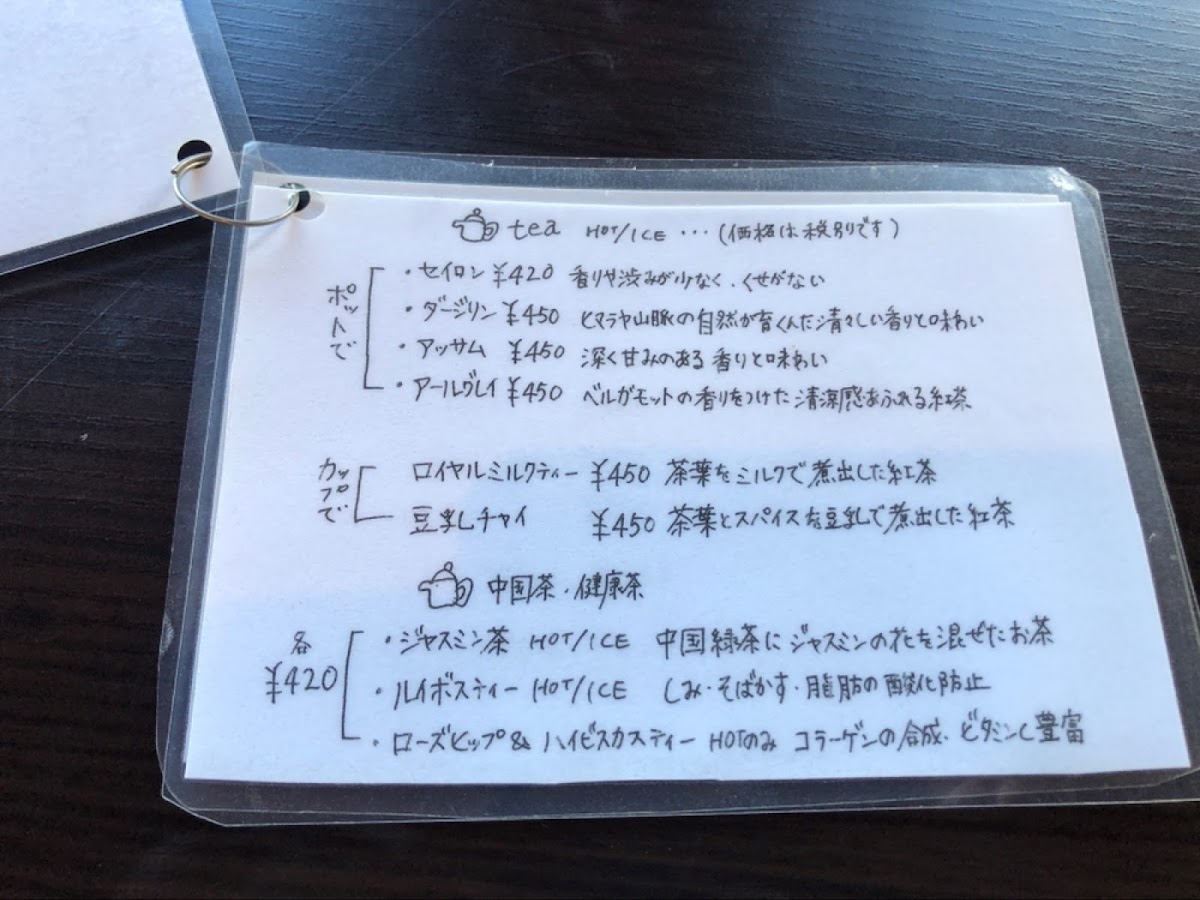 tea HOT/ICE ・・・(価格は税別です)
ポットで
・セイロン ¥420 香りや渋みが少なく、くせがない
・ダージリン ¥450 ヒマラヤ山脈の自然が育くんだ清々しい香りと味わい
・アッサム ¥450 深く甘みのある香りと味わい
・アールグレイ ¥450 ベルガモットの香りをつけた清涼感あふれる紅茶
カップで
ロイヤルミルクティー ¥450 茶葉をミルクで煮出した紅茶
豆乳チャイ ¥450 茶葉とスパイスを豆乳で煮出した紅茶
中国茶・健康茶
各
¥420
・ジャスミン茶 HOT/ICE 中国緑茶にジャスミンの花を混ぜたお茶
・ルイボスティー HOT/ICE しみ・そばかす・脂肪の酸化防止
・ローズヒップ & ハイビスカスティー HOTのみ コラーゲンの合成、ビタミンC豊富